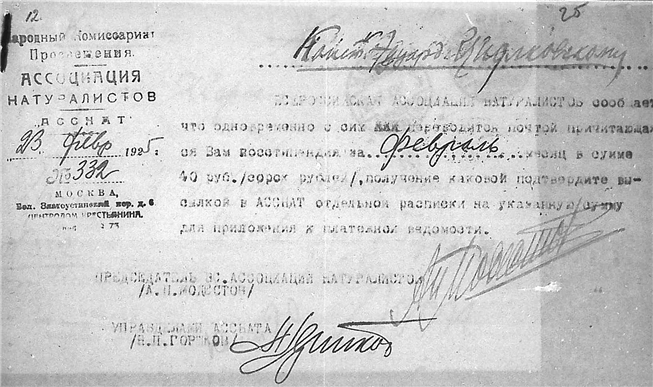 12.
25
Народный Комиссариат
Просвещения.
АССОЦИАЦИЯ
НАТУРАЛИСТОВ
"АССНАТ"
23 февр 1925 г.
№ 332
МОСКВА,
Бол. Златоустинский пер. д. 6
Конст. Эдуард. Циолковскому
ВСЕРОССИЙСКАЯ АССОЦИАЦИЯ НАТУРАЛИСТОВ сообщает
что одновременно с сим переводится почтой причитающа-
яся Вам госстипендия за февраль месяц в сумме
40 руб./сорок рублей/, получение каковой подтвердите вы-
сылкой в АССНАТ отдельной расписки на указанную сумму
для приложения к платежной ведомости.
ПРЕДСЕДАТЕЛЬ ВС. АССОЦИАЦИИ НАТУРАЛИСТОВ
/А.П.МОДЕСТОВ/
УПРАВДЕЛАМИ АССНАТА
/В.П.ГОРШКОВ/